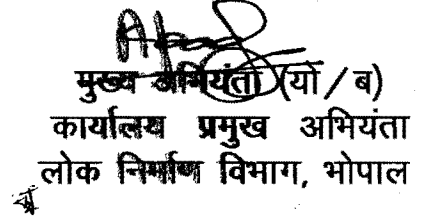 मुख्य अभियंता (यो/ब)
कार्यालय प्रमुख अभियंता
लोक निर्माण विभाग, भोपाल